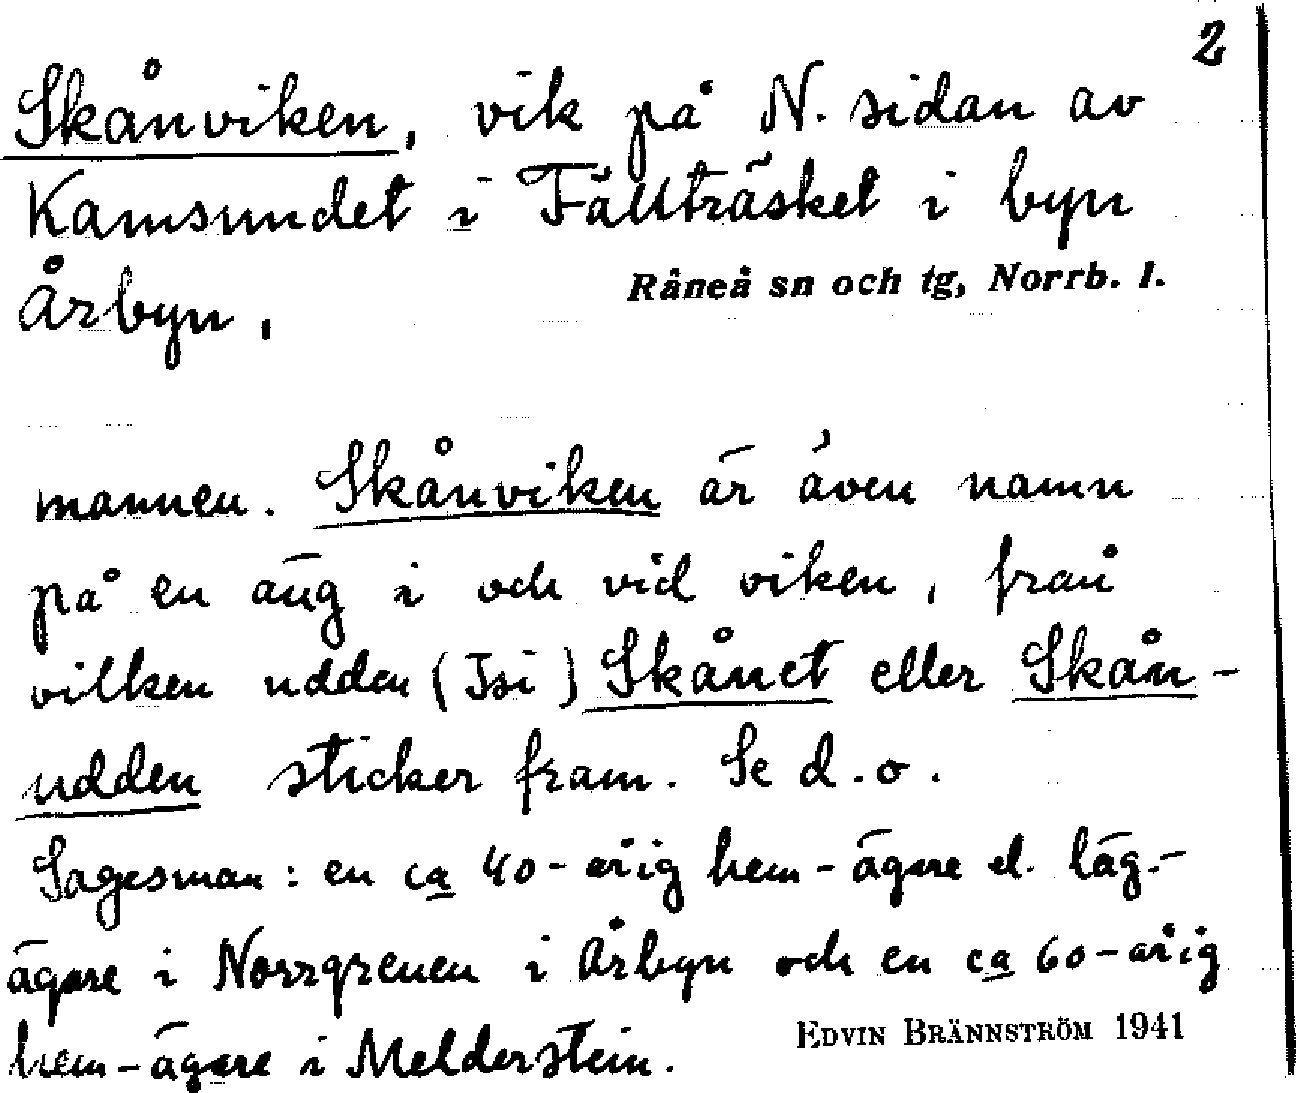 2
Skånviken, vik på N. sidan av
Kamsundet i Fällträsket i byn
Årbyn,
Råneå sn och tg, Norrb. l.
mannen. Skånviken är även namn
på en äng i och vid viken, från
vilken udden (Isi) Skånet eller Skån-
udden sticker fram. Se d.o.
Sagesman: en ca 40-årig hem-ägare el. läg.-
ägare i Norrgrenen i Årbyn och en ca 60-årig
hem-ägare i Melderstein.
EDVIN BRÄNNSTRÖM 1941